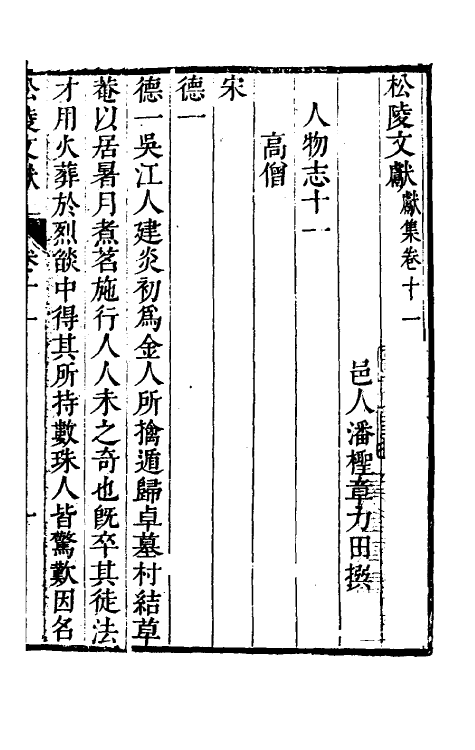 松陵文獻獻集卷十一
邑人潘檉章力田撰
人物志十一
高僧
宋
德一
德一吳江人建炎初爲金人所擒遁歸卓墓村結草
菴以居暑月煮茗施行人人未之奇也旣卒其徒法
才用火葬於烈燄中得其所持數珠人皆驚歎因名
松陵文獻 卷十一 一